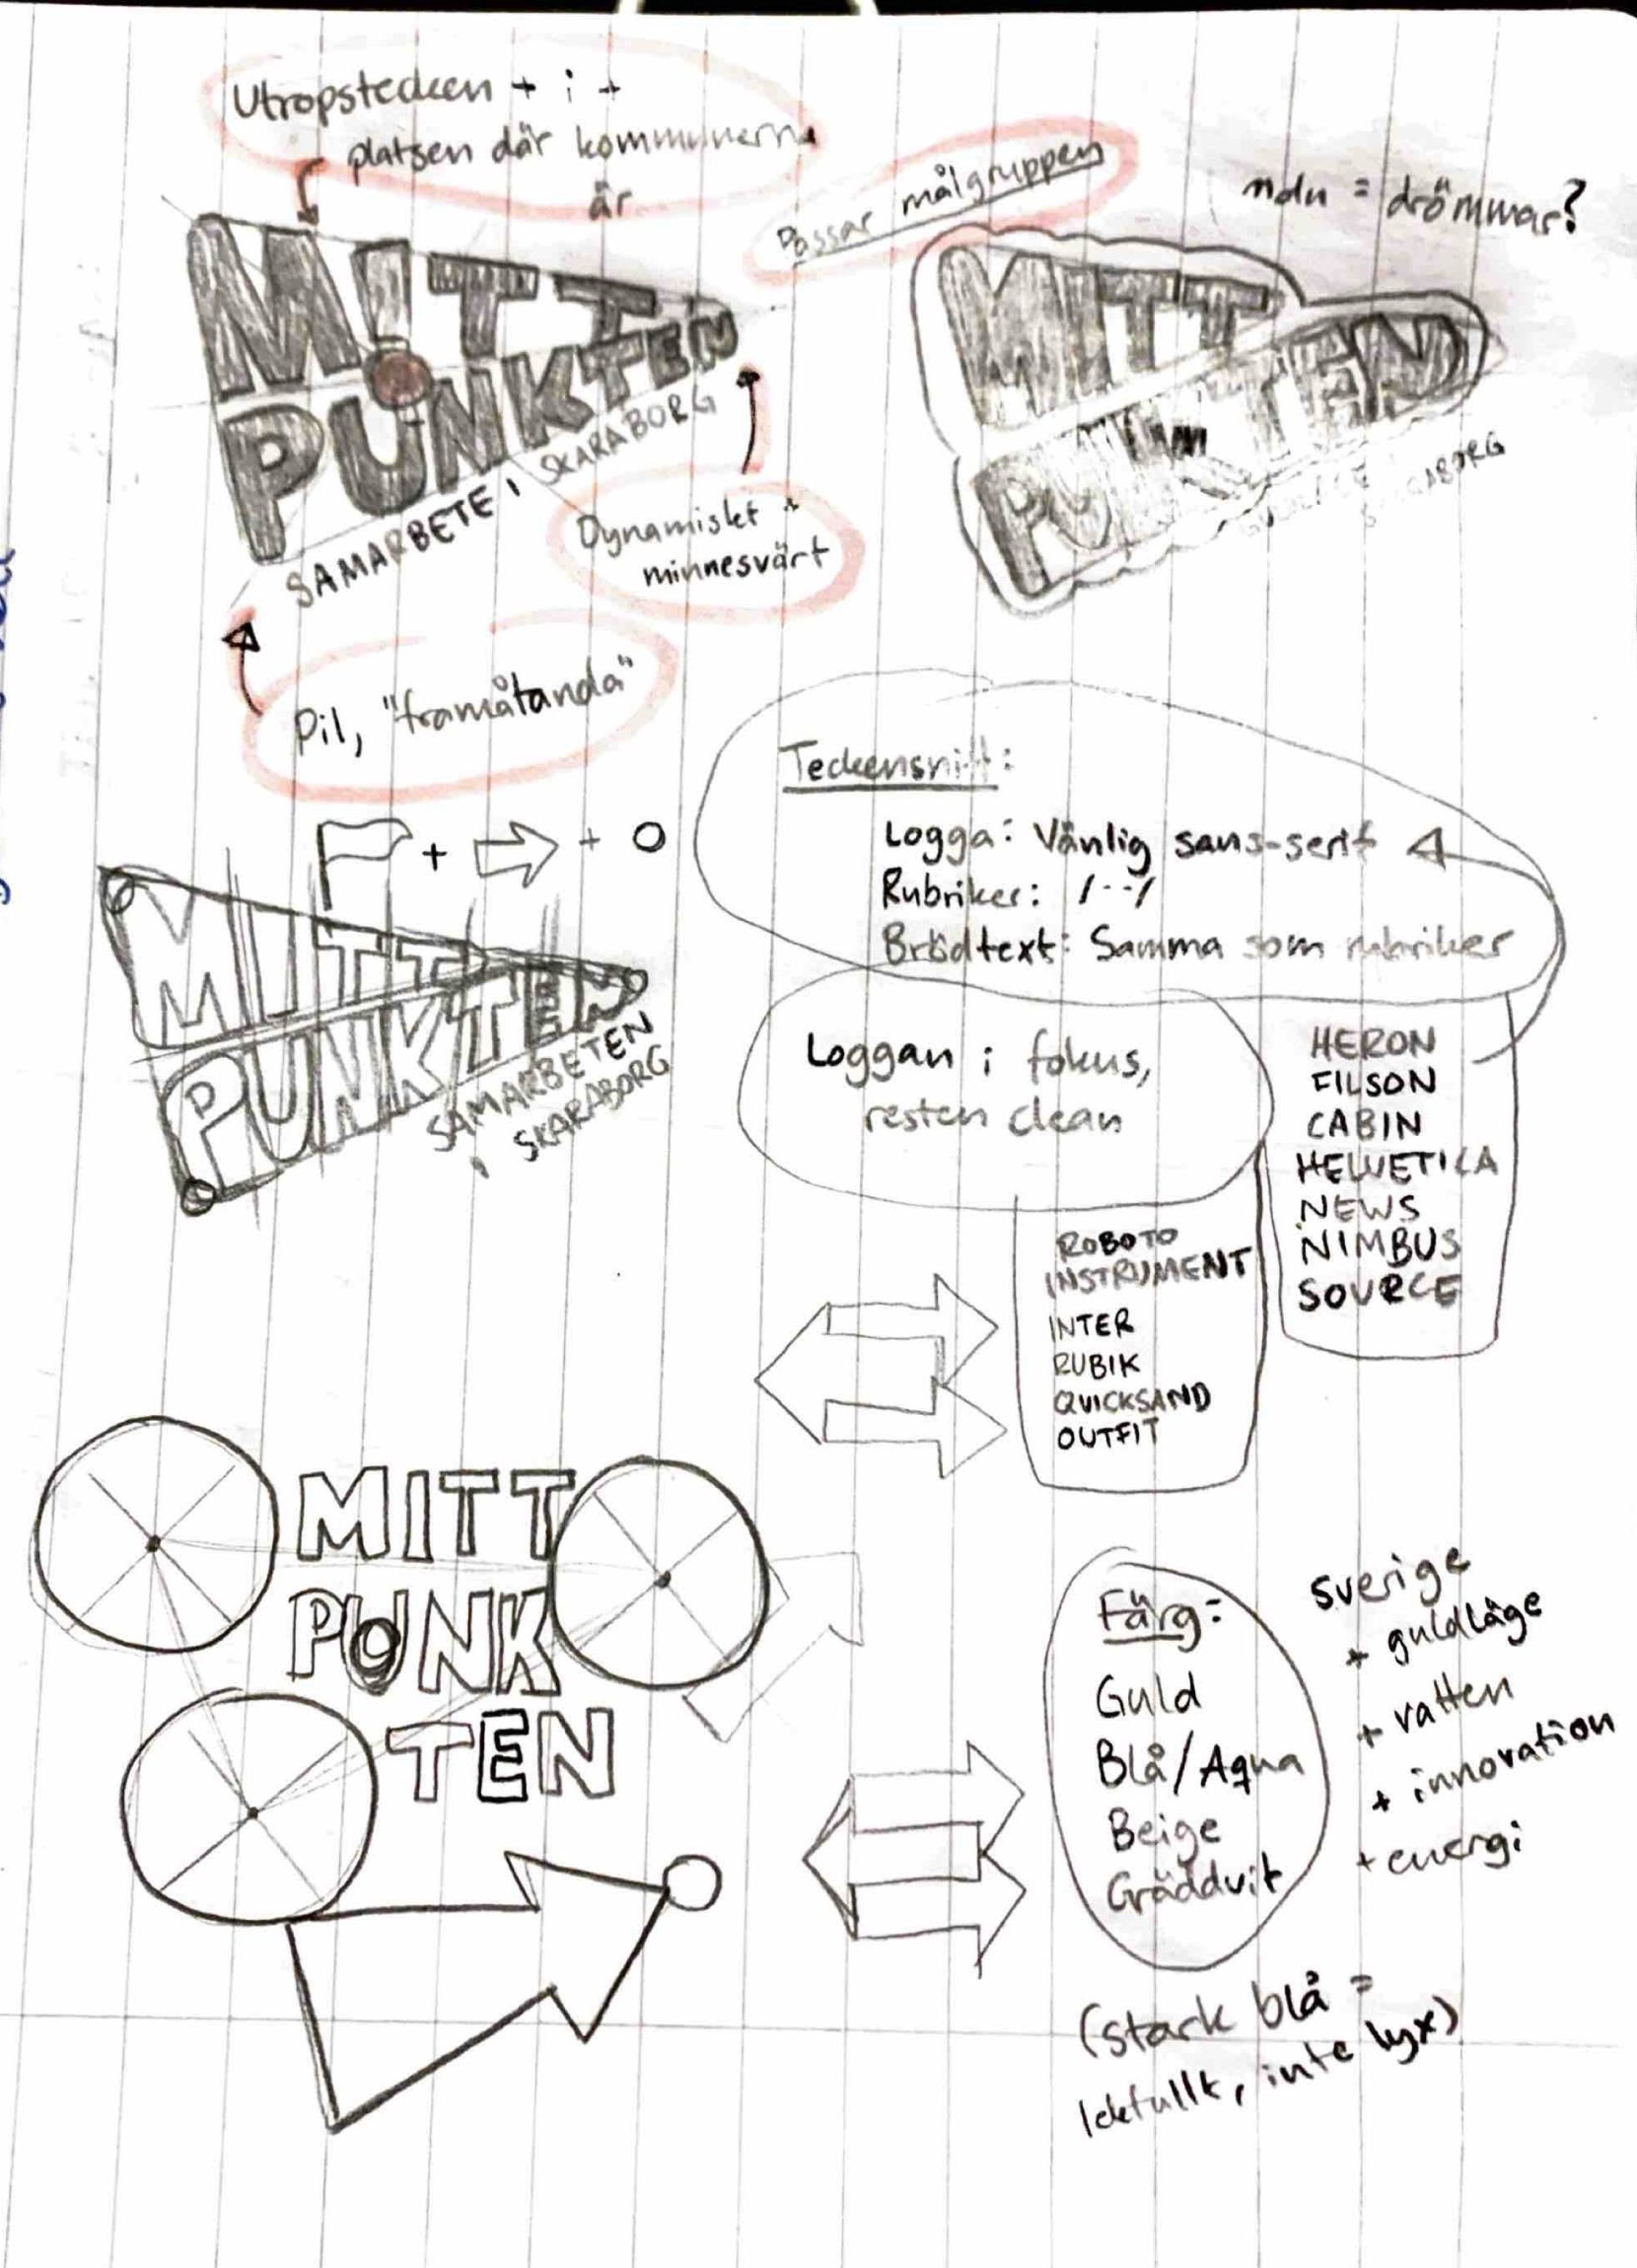 Utropstecken + i +
platsen där kommunerna
är
Passar målgruppen
moln = drömmar?
MITT
PUNKTEN
SAMARBETE I SKARABORG
MITT
PUNKTEN
Dynamiskt +
minnesvärt
Pil, "framåtanda"
Teckensnitt:
Logga: Vänlig sans-serif
Rubriker: /--/
Brödtext: Samma som rubriker
+ +
MITT
PUNKTEN
SAMARBETEN
I SKARABORG
Loggan i fokus,
resten clean
HERON
FILSON
CABIN
HELVETICA
NEWS
NIMBUS
SOURCE
ROBOTO
INSTRUMENT
INTER
RUBIK
QUICKSAND
OUTFIT
MITT
PUNK
TEN
Färg:
Guld
Blå/Aqua
Beige
Gräddvit
Sverige
+ guldläge
+ vatten
+ innovation
+ energi
(stark blå =
lekfullt, inte lyx)